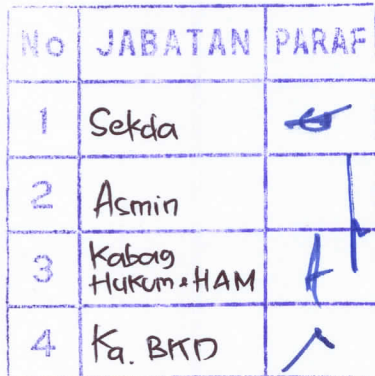 No JABATAN PARAF
1 Sekda
2 Asmin
3 Kabag
Hukum & HAM
4 Ka. BKD